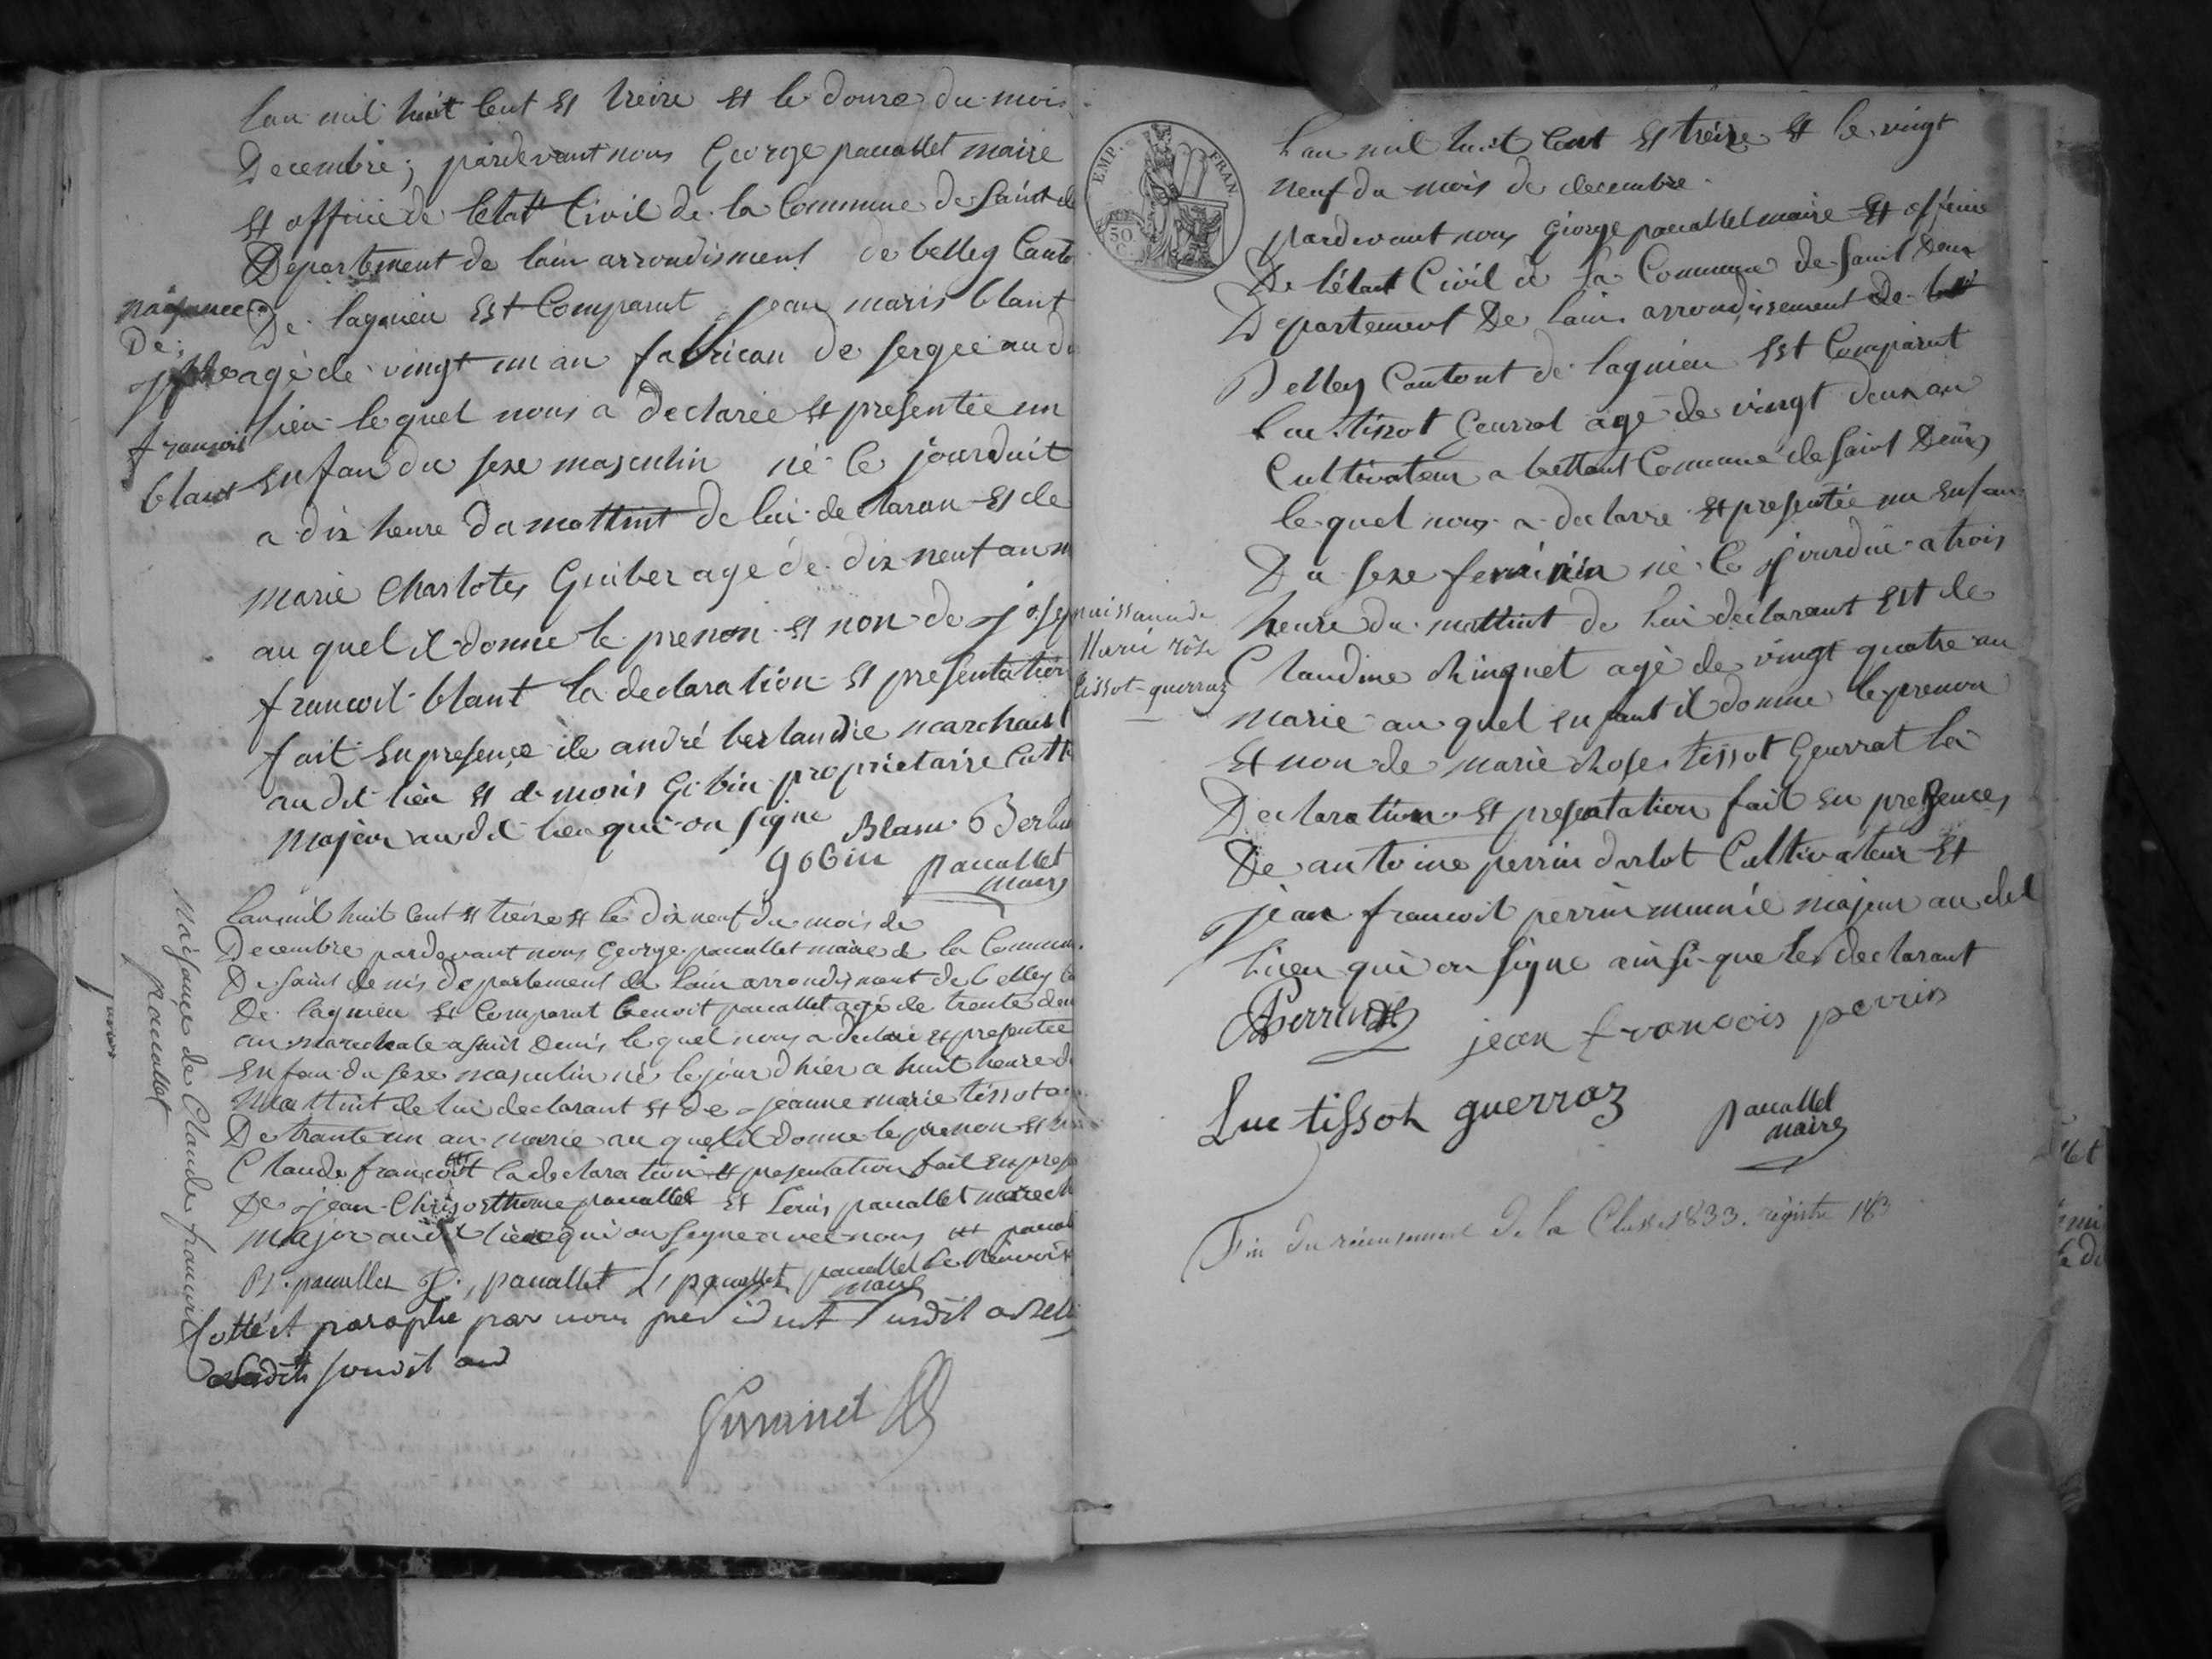 Lan mil huit Cent Et treize Et le douze du mois
Decembre; pardevant nous George paucallet maire
Et officie de letat Civil de la Commune de Saint de
Departement de lain arrondisment de belley Canto
De lagnieu Est Comparut jean maris blant
agé de vingt un an fabrican de sergee au d
lieu lequel nous a declarée Et presentée un
Enfan du sexe masculin né le jourduit
a dix heure du mattint de lui declaran Et de
marie Charlotes Guiber agé de dix neuf an m
au quel il donne le prenon Et non de josep
francoit blant la declaration Et presentation
fait En presence de andré berlandie marchant
au dit lieu Et de moris Gobin propriétaire Cult
majeur au dit lieu qui on signe Blanc Berlan
gobin paucallet
maire
naisance
De
joseph
francoit
blant
Lan mil huit Cent Et treize Et le dix neuf du mois de
Decembre pardevant nous George paucallet maire de la Commun
De saint denis departement de lain arrondisment de belley Ca
De lagnieu Et Comparut benoit paucallet agé de trente deu
an marechale a saint Denis lequel nous a declaré Et presentée
Enfan du sexe masculin né le jour dhier a huit heure d
Mattint de lui declarant Et de jeanne marie tissot a
De trante un an marie au quel il donne le prenon Et n
Claude francoit la declaration Et presentation fait En pres
De jean Chrisosthome paucallet Et Louis paucallet marech
Major au dit lieu qui on signe avec nous
paucallet paucallet L paucallet paucallet Benoit
maire
Naisance de Claude francoit
paucallet
Cotté et paraphé par nous president sudit a Bell
sondit
EMP. FRAN.
50
C.
Lan mil huit Cent Et treize Et le vingt
neuf du mois de decembre
pardevant nous George paucallet maire Et officie
De létat Civil de la Commune de Saint Deni
Departement De lain arrondissement de
Belley Cantont de lagnieu Est Comparut
Luc tissot Geurrat agé de vingt deux an
Cultivateur a bettant Commune de saint Denis
lequel nous a declarre Et presentée un Enfan
Du sexe feminin né le jourdui a trois
heure du mattint de lui declarant Et de
Claudine Chinquet agé de vingt quatre an
marie au quel Enfant il donne le prenon
Et non de marie Rose tissot Geurrat la
Declaration Et presentation fait En presence
De antoine perrin darlot Cultivateur Et
jean francoit perrin munié majeur au dit
lieu qui on signe ainsi que le declarant
naissance de
Marie rose
tissot-guerraz
Aperrin jean francois perrin
Luc tissot guerraz paucallet
maire
Fin du recensement de la Classe 1833. registre 183